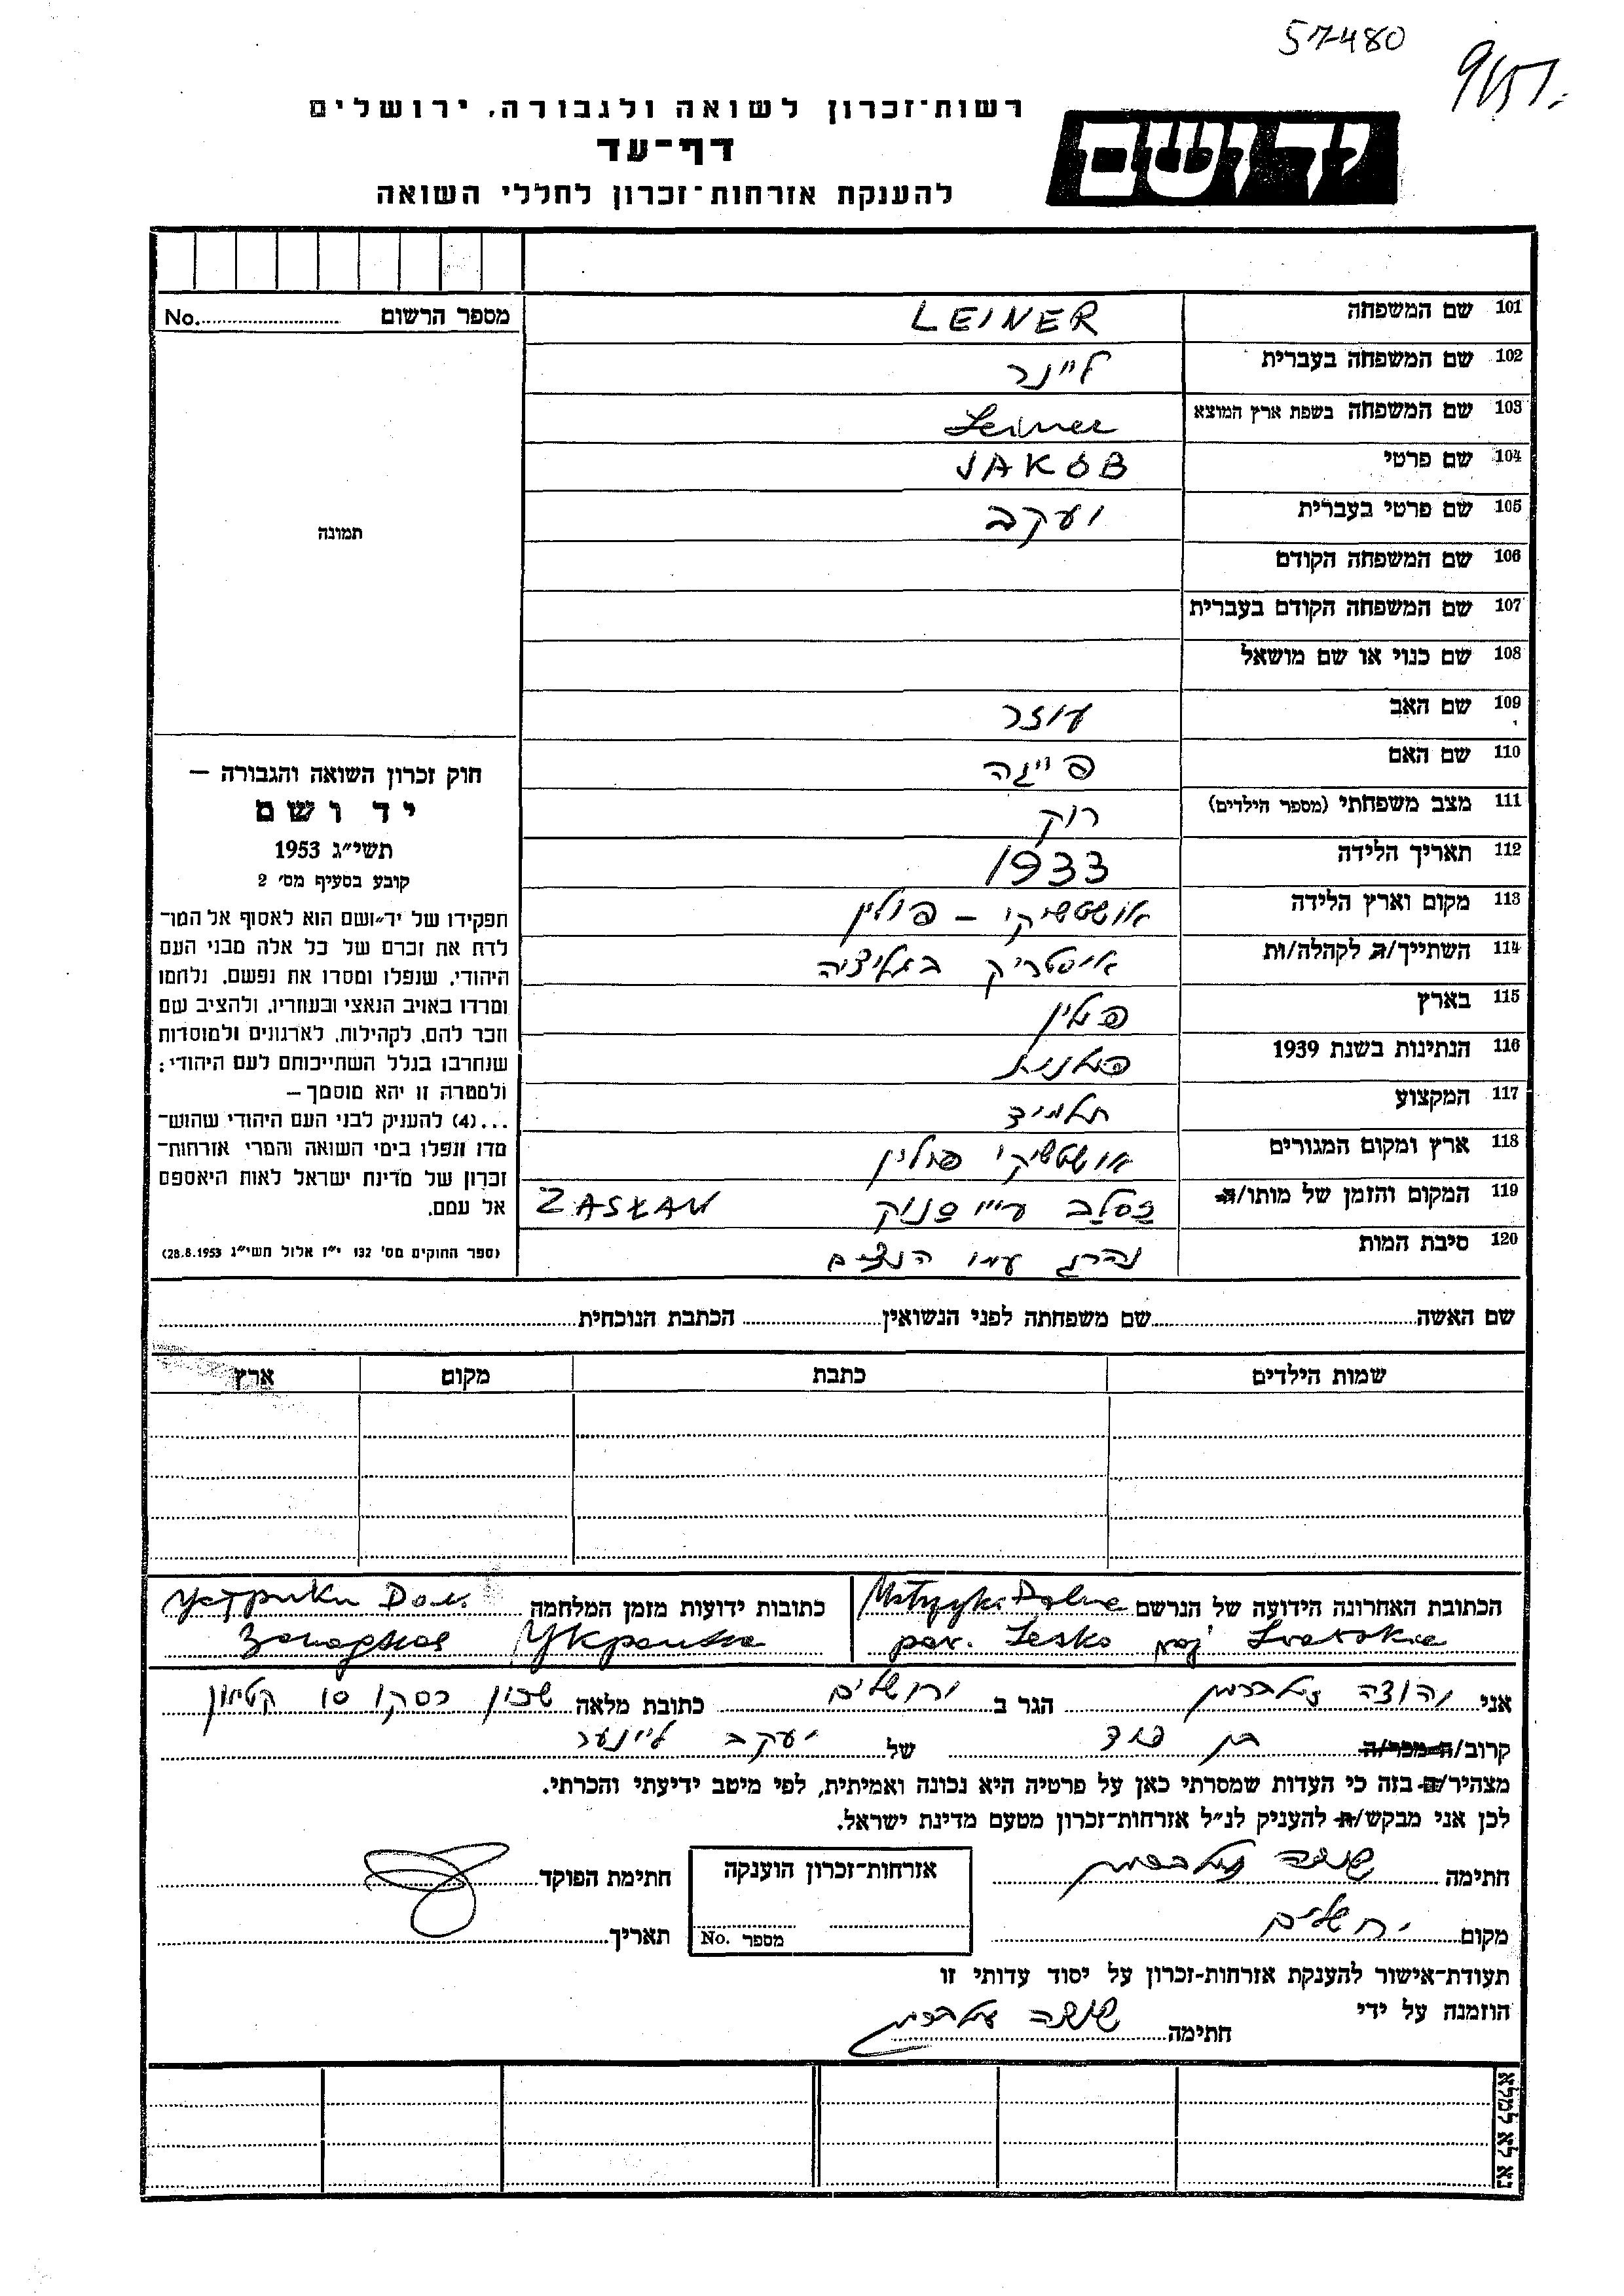 57480
רשות־זכרון לשואה ולגבורה, ירושלים
דף־עד
להענקת אזרחות־זכרון לחללי השואה
יד ושם
101 שם המשפחה LEINER
מספר הרשום No.
102 שם המשפחה בעברית ליינר
103 שם המשפחה בשפת ארץ המוצא Leiner
104 שם פרטי JAKÓB
105 שם פרטי בעברית יעקב
106 שם המשפחה הקודם
107 שם המשפחה הקודם בעברית
108 שם כנוי או שם מושאל
109 שם האב עוזר
110 שם האם פייגה
111 מצב משפחתי (מספר הילדים) רוק
112 תאריך הלידה 1933
113 מקום וארץ הלידה אושטשיקי – פולין
114 השתייך/ה לקהלה/ות איסטריק בגליציה
115 בארץ פולין
116 הנתינות בשנת 1939 פולנית
117 המקצוע תלמיד
118 ארץ ומקום המגורים אושטשיקי פולין
119 המקום והזמן של מותו/ה זסלב ע״י סנוק ZASŁAW
120 סיבת המות נהרג ע״י הנצים
תמונה
חוק זכרון השואה והגבורה –
יד ושם
תשי״ג 1953
קובע בסעיף מס׳ 2
תפקידו של יד־ושם הוא לאסוף אל המו־
לדת את זכרם של כל אלה מבני העם
היהודי, שנפלו ומסרו את נפשם, נלחמו
ומרדו באויב הנאצי ובעוזריו, ולהציב שם
וזכר להם, לקהילות, לארגונים ולמוסדות
שנחרבו בגלל השתייכותם לעם היהודי;
ולמטרה זו יהא מוסמך –
...(4) להעניק לבני העם היהודי שהוש־
מדו ונפלו בימי השואה והמרי אזרחות־
זכרון של מדינת ישראל לאות היאספם
אל עמם.
(ספר החוקים מס׳ 132 י״ז אלול תשי״ג 28.8.1953)
שם האשה שם משפחתה לפני הנשואין הכתבת הנוכחית
שמות הילדים כתבת מקום ארץ
הכתובת האחרונה הידועה של הנרשם Ustrzyki Dolne
pow. Lesko woj Lwowskie
כתובות ידועות מזמן המלחמה Устрики Дол.
Западная Украина
אני הגר ב ירושלים כתובת מלאה שכון רסקו 10 קטמון
קרוב/ה מכר/ה בן דוד של יעקב ליינער
מצהיר/ה בזה כי העדות שמסרתי כאן על פרטיה היא נכונה ואמיתית, לפי מיטב ידיעתי והכרתי.
לכן אני מבקש/ת להעניק לנ״ל אזרחות־זכרון מטעם מדינת ישראל.
חתימה
אזרחות־זכרון הוענקה
חתימת הפוקד
מקום ירושלים
מספר No.
תאריך
תעודת־אישור להענקת אזרחות־זכרון על יסוד עדותי זו
הוזמנה על ידי
חתימה
נא לא למלא